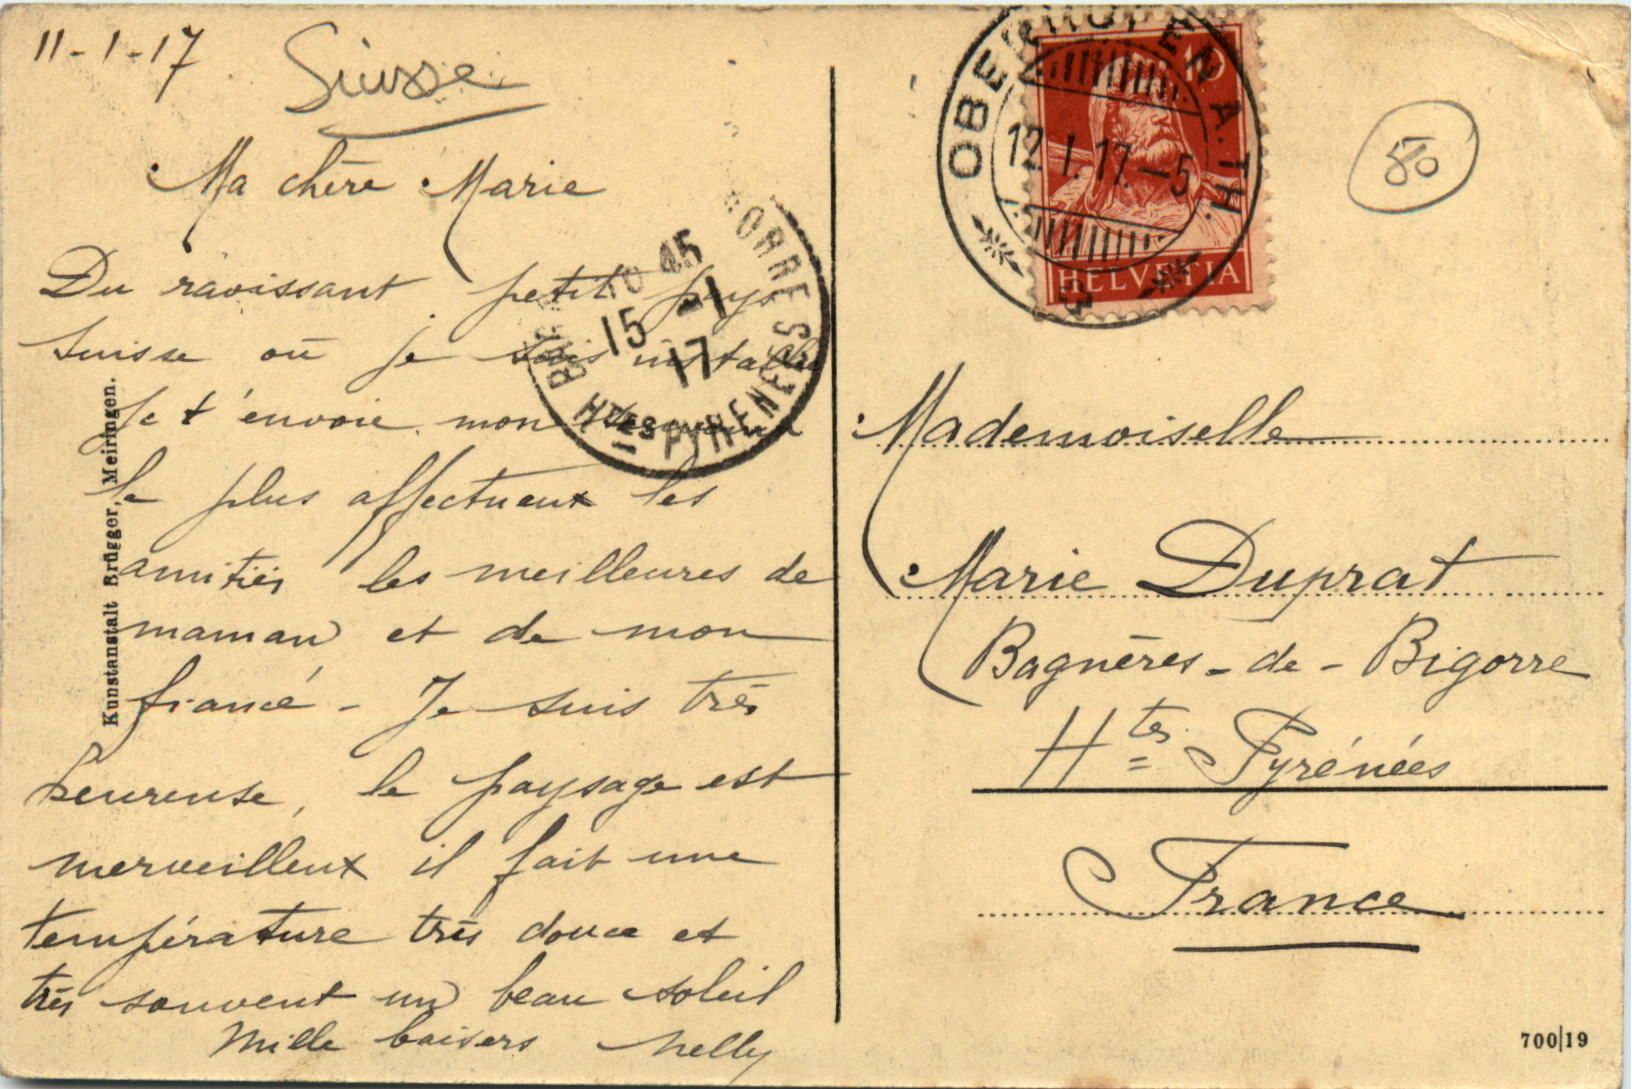 11-1-17
Suisse
Ma chère Marie
Du ravissant petit pays
suisse où je suis installée
Je t'envoie mon souvenir
le plus affectueux les
amitiés les meilleures de
maman et de mon
fiancé - Je suis très
heureuse, le paysage est
merveilleux il fait une
température très douce et
très souvent un beau soleil
Mille baisers Nelly
Kunstanstalt Brügger, Meiringen.
10 45
15 -1
17
BIGORRE
HTES PYRENEES
OBERHOFEN A. TH.
12.I.17.-5
10
HELVETIA
50
Mademoiselle
Marie Duprat
Bagnères-de-Bigorre
Htes Pyrénées
France
700|19